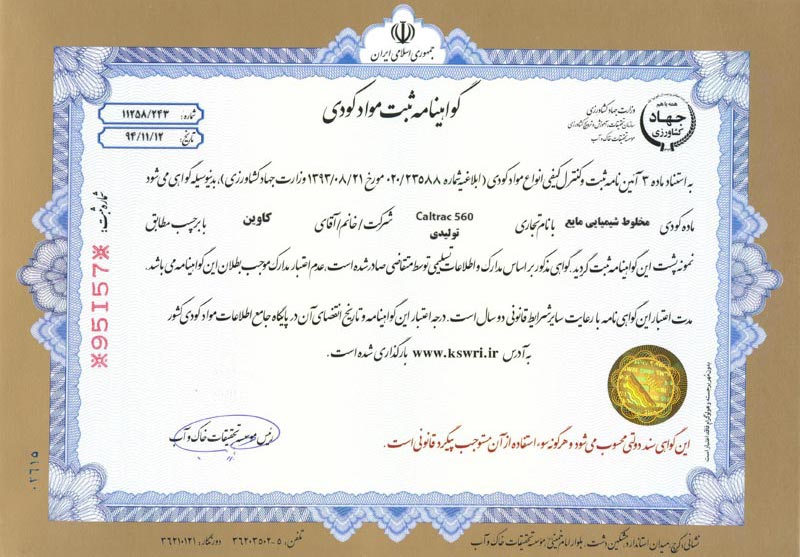 جمهوری اسلامی ایران
گواهینامه ثبت مواد کودی
شماره: ۱۱۲۵۸/۲۴۳
تاریخ: ۹۴/۱۱/۱۲
وزارت جهاد کشاورزی
سازمان تحقیقات، آموزش و ترویج کشاورزی
موسسه تحقیقات خاک و آب
همه با هم
جهاد
کشاورزی
به استناد ماده ۳ آئین نامه ثبت و کنترل کیفی انواع مواد کودی (ابلاغیه شماره ۰۲۰/۲۳۵۸۸ مورخ ۱۳۹۳/۰۸/۲۱ وزارت جهاد کشاورزی)، بدینوسیله گواهی می شود
ماده کودی مخلوط شیمیایی مایع با نام تجاری Caltrac 560 تولیدی شرکت/خانم/آقای کاوین با برچسب مطابق
نمونه پشت این گواهینامه ثبت گردید. گواهی مذکور بر اساس مدارک و اطلاعات تسلیمی توسط متقاضی صادر شده است، عدم اعتبار مدارک موجب بطلان این گواهینامه می باشد.
مدت اعتبار این گواهی نامه با رعایت سایر شرایط قانونی دو سال است. درجه اعتبار این گواهینامه و تاریخ انقضای آن در پایگاه جامع اطلاعات مواد کودی کشور
به آدرس www.kswri.ir بارگذاری شده است.
شماره ثبت:
※95157※
رئیس موسسه تحقیقات خاک و آب
بدون مهر برجسته و هولوگرام فاقد اعتبار است
این گواهی سند دولتی محسوب می شود و هرگونه سوء استفاده از آن مستوجب پیگرد قانونی است.
۰۲۶۱۵
نشانی: کرج، میدان استاندارد، مشکین دشت، بلوار امام خمینی، موسسه تحقیقات خاک و آب تلفن: ۵-۳۶۲۰۳۵۰۲ دورنگار: ۳۶۲۱۰۱۲۱